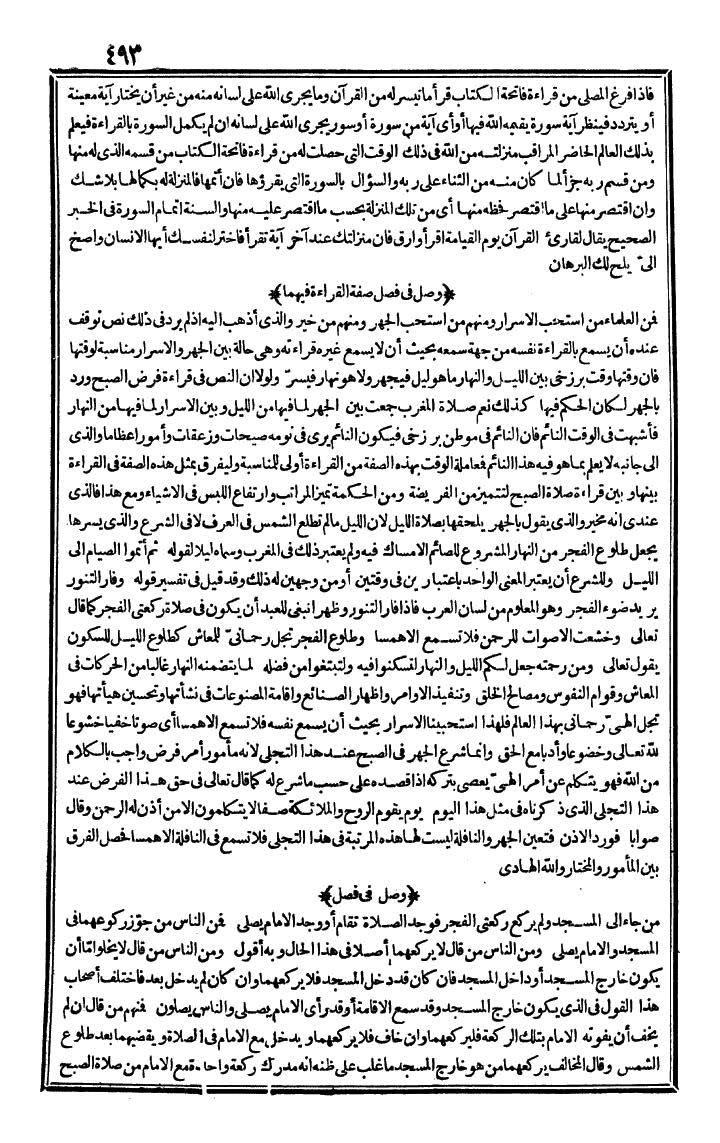 ٤٩٣
فاذا فرغ المصلى من قراءة فاتحة الكتاب قرأ ما تيسر له من القرآن وما يجرى الله على لسانه منه من غير أن يختار آية معينة
أو يتردد فينظر آية سورة يقيمه الله فيها أو أى آية من سورة أو سور يجرى الله على لسانه ان لم يكمل السورة بالقراءة فيعلم
بذلك العالم الحاضر المراقب منزلته من الله فى ذلك الوقت التى حصلت له من قراءة فاتحة الكتاب من قسمه الذى له منها
ومن قسم ربه جزأ لما كان منه من الثناء على ربه والسؤال بالسورة التى يقرؤها فان أتمها فالمنزلة له بكمالها بلا شك
وان اقتصر منها على ما اقتصر فحظه منها أى من تلك المنزلة بحسب ما اقتصر عليه منها والسنة اتمام السورة فى الخبر
الصحيح يقال لقارئ القرآن يوم القيامة اقرأ وارق فان منزلتك عند آخر آية تقرأ فاختر لنفسك أيها الانسان واصغ
الىّ يلح لك البرهان
﴿وصل فى فصل صفة القراءة فيهما﴾
فمن العلماء من استحب الاسرار ومنهم من استحب الجهر ومنهم من خير والذى أذهب اليه اذ لم يرد فى ذلك نص توقف
عنده أن يسمع بالقراءة نفسه من جهة سمعه بحيث أن لا يسمع غيره قراءته وهى حالة بين الجهر والاسرار مناسبة لوقتها
فان وقتها وقت برزخى بين الليل والنهار ما هو ليل فيجهر ولا هو نهار فيسرّ ولولا ان النص فى قراءة فرض الصبح ورد
بالجهر لكان الحكم فيها كذلك نعم صلاة المغرب جمعت بين الجهر لما فيها من الليل وبين الاسرار لما فيها من النهار
فأشبهت فى الوقت النائم فان النائم فى موطن برزخى فيكون النائم يرى فى نومه صيحات وزعقات وأمورا عظاما والذى
الى جانبه لا يعلم بما هو فيه هذا النائم فعاملة الوقت بهذه الصفة من القراءة أولى للمناسبة وليفرق بمثل هذه الصفة فى القراءة
بينها وبين قراءة صلاة الصبح لتتميز من الفريضة ومن الحكمة تميز المراتب وارتفاع اللبس فى الاشياء ومع هذا فالذى
عندى انه مخير والذى يقول بالجهر يلحقها بصلاة الليل لان الليل ما لم تطلع الشمس فى العرف لا فى الشرع والذى يسرها
يجعل طلوع الفجر من النهار المشروع للصائم الامساك فيه ولم يعتبر ذلك فى المغرب وسماه ليلا لقوله ثم أتموا الصيام الى
الليل وللشرع أن يعتبر المعنى الواحد باعتبارين فى وقتين أو من وجهين له ذلك وقد قيل فى تفسير قوله وفار التنور
يريد ضوء الفجر وهو المعلوم من لسان العرب فاذا فار التنور وظهر انبغى للعبد أن يكون فى صلاة ركعتى الفجر كما قال
تعالى وخشعت الاصوات للرحمن فلا تسمع الا همسا وطلوع الفجر تجل رحمانىّ للمعاش كطلوع الليل للسكون
يقول تعالى ومن رحمته جعل لكم الليل والنهار لتسكنوا فيه ولتبتغوا من فضله لما يتضمنه النهار غالبا من الحركات فى
المعاش وقوام النفوس ومصالح الخلق وتنفيذ الاوامر واظهار الصنائع واقامة المصنوعات فى نشأتها وتحسين هيأتها فهو
تجل الهىّ رحمانى بهذا العالم فلهذا استحببنا الاسرار بحيث أن يسمع نفسه فلا تسمع الا همسا أى صوتا خفيا خشوعا
لله تعالى وخضوعا وأدبا مع الحق وانما شرع الجهر فى الصبح عند هذا التجلى لانه مأمور أمر فرض واجب بالكلام
من الله فهو يتكلم عن أمر الهىّ يعصى بتركه اذا قصده على حسب ما شرع له كما قال تعالى فى حق هذا الفرض عند
هذا التجلى الذى ذكرناه فى مثل هذا اليوم يوم يقوم الروح والملائكة صفا لا يتكلمون الا من أذن له الرحمن وقال
صوابا فورد الاذن فتعين الجهر والنافلة ليست لها هذه المرتبة فى هذا التجلى فلا تسمع فى النافلة الا همسا فحصل الفرق
بين المأمور والمختار والله الهادى
﴿وصل فى فصل﴾
من جاء الى المسجد ولم يركع ركعتى الفجر فوجد الصلاة تقام أو وجد الامام يصلى فمن الناس من جوّز ركوعهما فى
المسجد والامام يصلى ومن الناس من قال لا يركعهما أصلا فى هذا الحال وبه أقول ومن الناس من قال لا يخلو امّا أن
يكون خارج المسجد أو داخل المسجد فان كان قد دخل المسجد فلا يركعهما وان كان لم يدخل بعد فاختلف أصحاب
هذا القول فى الذى يكون خارج المسجد وقد سمع الاقامة أو قد رأى الامام يصلى والناس يصلون فمنهم من قال ان لم
يخف أن يفوته الامام بتلك الركعة فليركعهما وان خاف فلا يركعهما ويدخل مع الامام فى الصلاة ويقضيهما بعد طلوع
الشمس وقال المخالف يركعهما من هو خارج المسجد ما غلب على ظنه انه مدرك ركعة واحدة مع الامام من صلاة الصبح